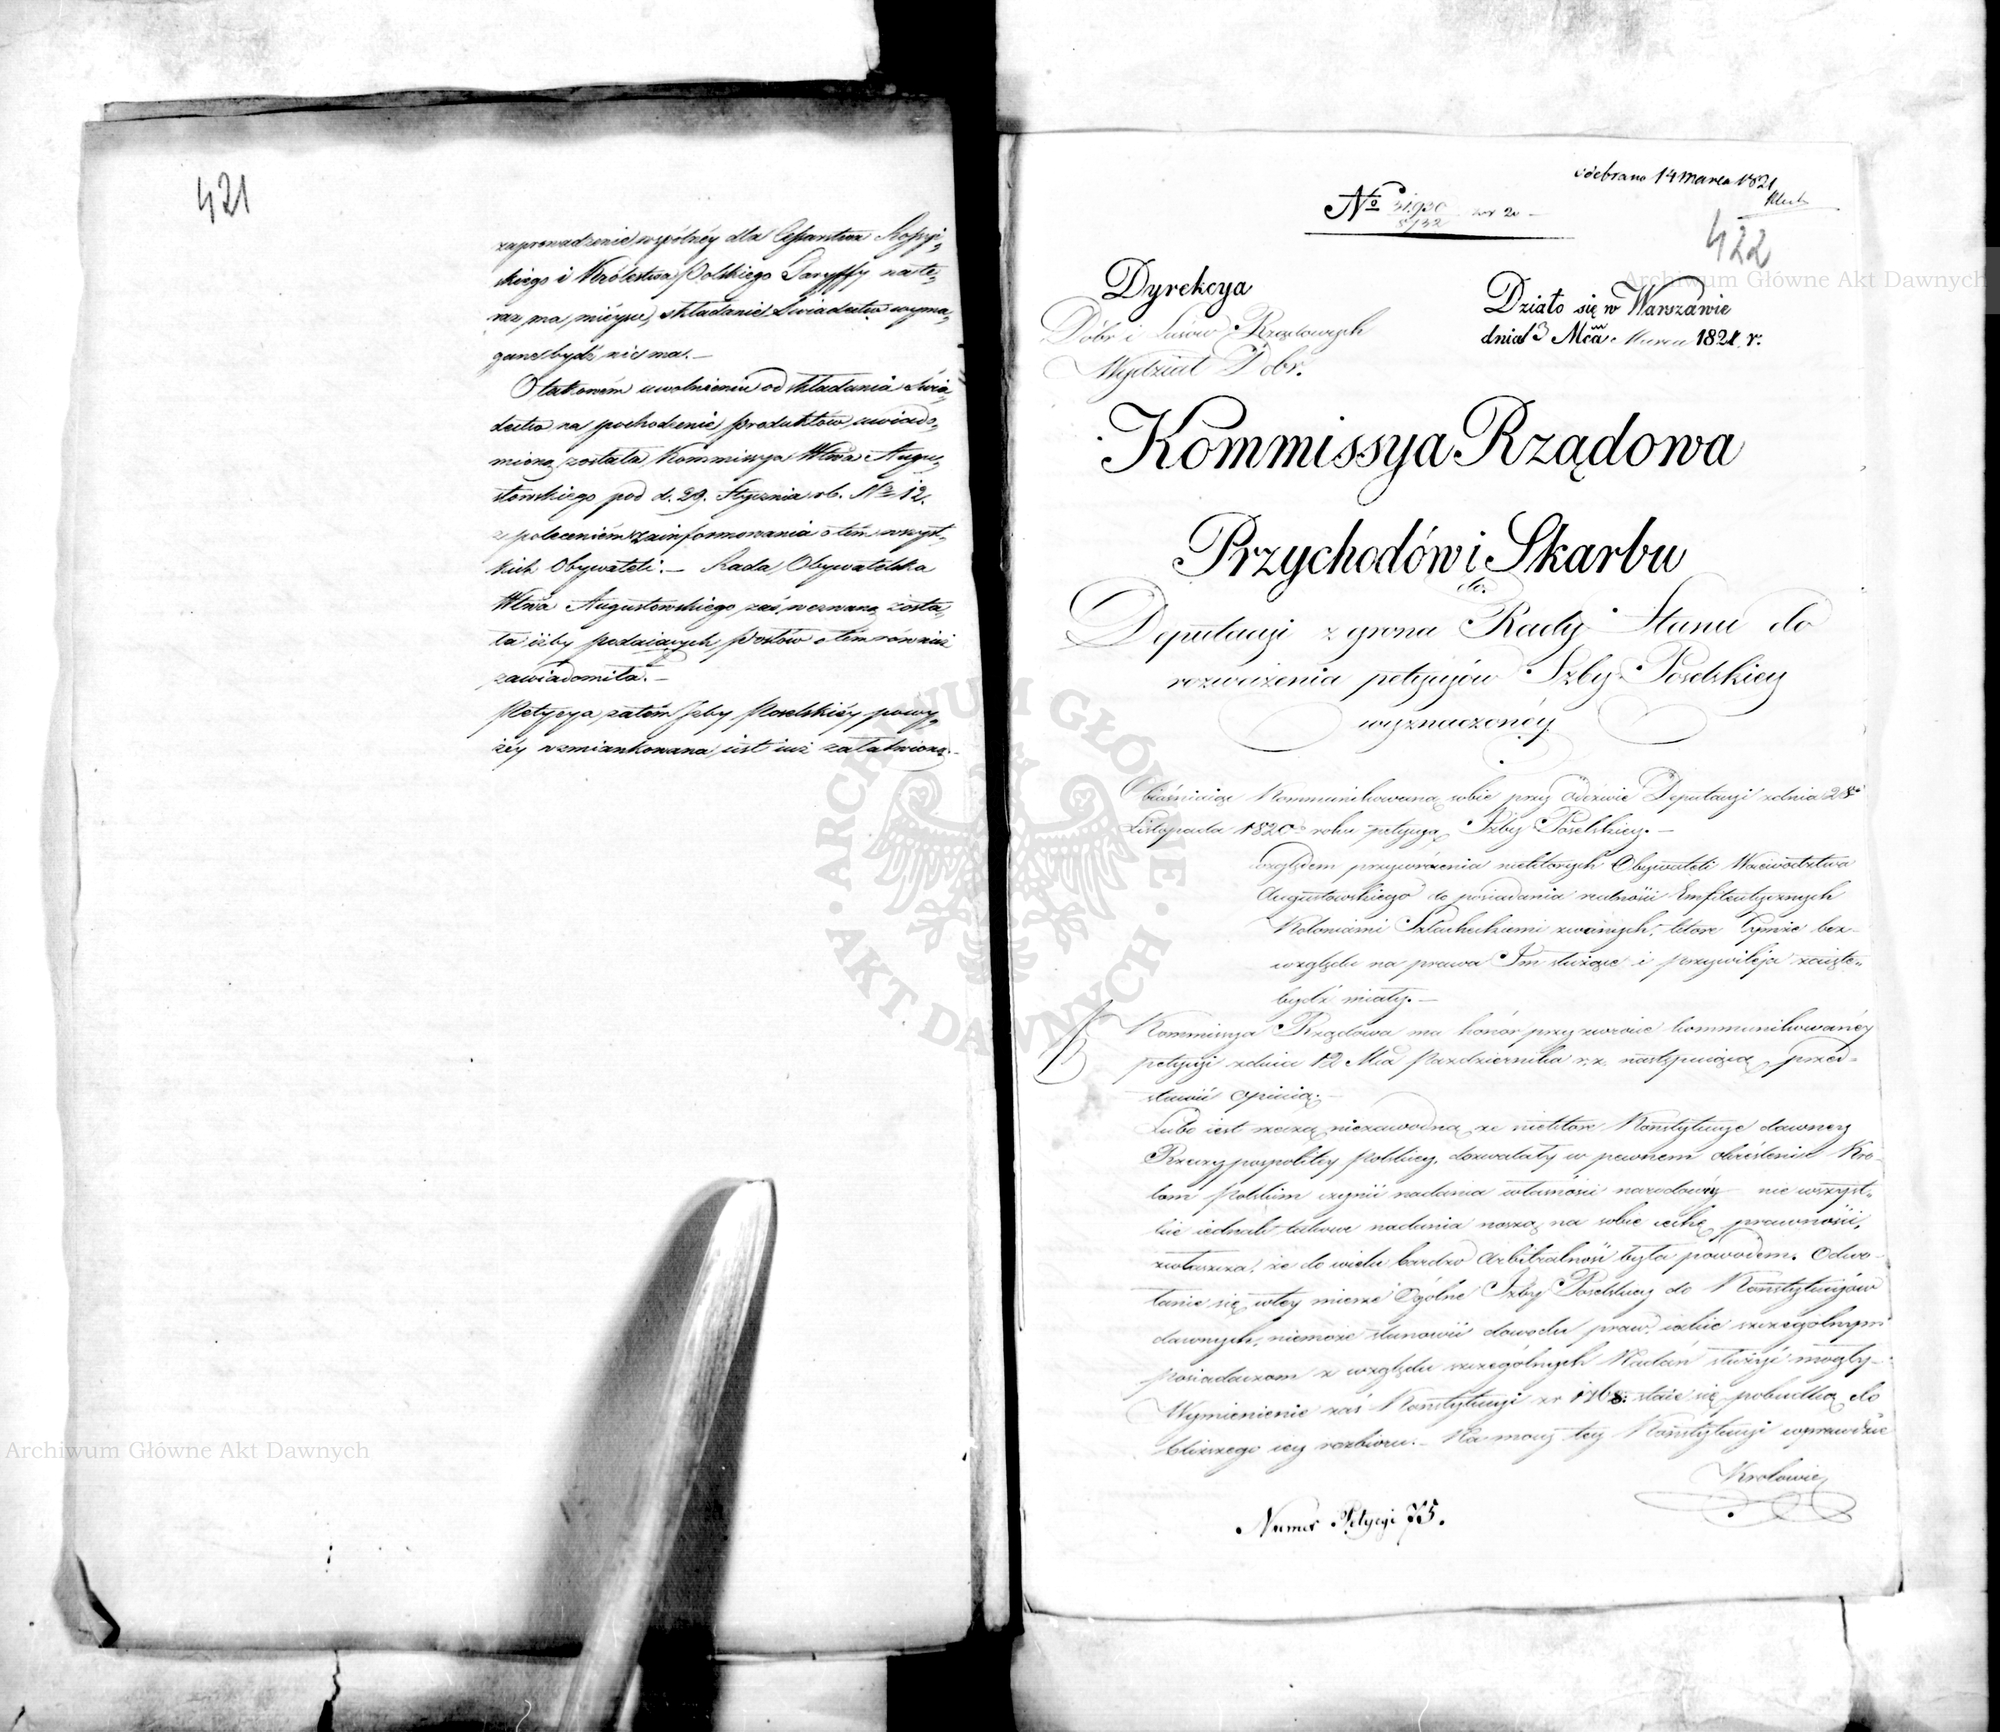 421
zaprowadzenie wspólnéy dla Cesarstwa Rossyi-
skiego i Królestwa Polskiego Taryffy na te-
raz ma mieysce, składanie Świadectw wyma-
gane bydź nie ma. —
O takowém uwolnieniu od składania Świa-
dectw na pochodzenie produktów, uwiado-
mioną została Kommissya Wtwa Augu-
stowskiego pod d. 29. Stycznia rb. No 12.
z poleceniem zainformowania o tém wszyst-
kich Obywateli. — Rada Obywatelska
Wtwa Augustowskiego zaś wezwaną zosta-
ła iżby podaiących Posłów o tém również
zawiadomiła. —
Petycya zatém Izby Poselskiéy powy-
żéy wzmiankowana iest iuż załatwioną. —
odebrano 14 Marca 1821
No 31930
8132
422
Dyrekcya
Dóbr i Lasów Rządowych
Wydział Dóbr.
Działo się w Warszawie
dnia 3 Mca Marca 1821 r.
Kommissya Rządowa
Przychodów i Skarbu
do
Deputacyi z grona Rady Stanu do
rozważenia petycyów Izby Poselskiey
wyznaczonéy.
Obiaśniaiąc kommunikowaną sobie przy odezwie Deputacyi z dnia 28
Listopada 1820 roku petycyą Izby Poselskiey. —
względem przywrócenia niektórych Obywateli Woiewództwa
Augustowskiego do posiadania realności Emfiteutycznych
Koloniami Szlacheckiemi zwanych, które tymże bez-
względu na prawa Im służące i przywileja zaięte
bydź miały. —
Kommissya Rządowa ma honor przy zwrocie kommunikowanéy
petycyi z dnia 12 Mca Października r. z. następuiącą przed-
stawić opinią. —
Lubo iest rzeczą niezawodną że niektóre Konstytucye dawney
Rzeczypospolitey Polskiey, dozwalały w pewnem określeniu Kró-
lom Polskim czynić nadania własności narodowéy nie wszyst-
kie iednak takowe nadania noszą na sobie cechę prawności,
zwłaszcza, że do wielu bardzo Arbitralność była powodem. Odwo-
łanie się w tey mierze Ogólne Izby Poselskiey do Konstytucyów
dawnych, niemoże stanowić dowodu praw, iakie szczególnym
Posiadaczom z względu szczególnych Nadań służyć mogły —
Wymienienie zaś Konstytucyi z r. 1768. staie się pobudką do
bliższego iey rozbioru. — Na mocy tey Konstytucyi wprawdzie
Królowie
Numer Petycyi 75.
Archiwum Główne Akt Dawnych
ARCHIWUM GŁÓWNE · AKT DAWNYCH ·
Archiwum Główne Akt Dawnych